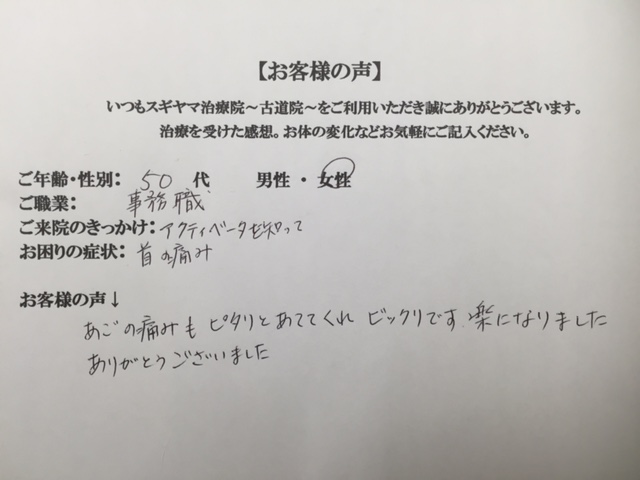 【お客様の声】
いつもスギヤマ治療院～古道院～をご利用いただき誠にありがとうございます。
治療を受けた感想。お体の変化などお気軽にご記入ください。
ご年齢・性別： 50 代 男性 ・ 女性
ご職業： 事務職
ご来院のきっかけ：アクティベータを知って
お困りの症状：首の痛み
お客様の声↓
あごの痛みも ピタリとあててくれ ビックリです。楽になりました
ありがとうございました